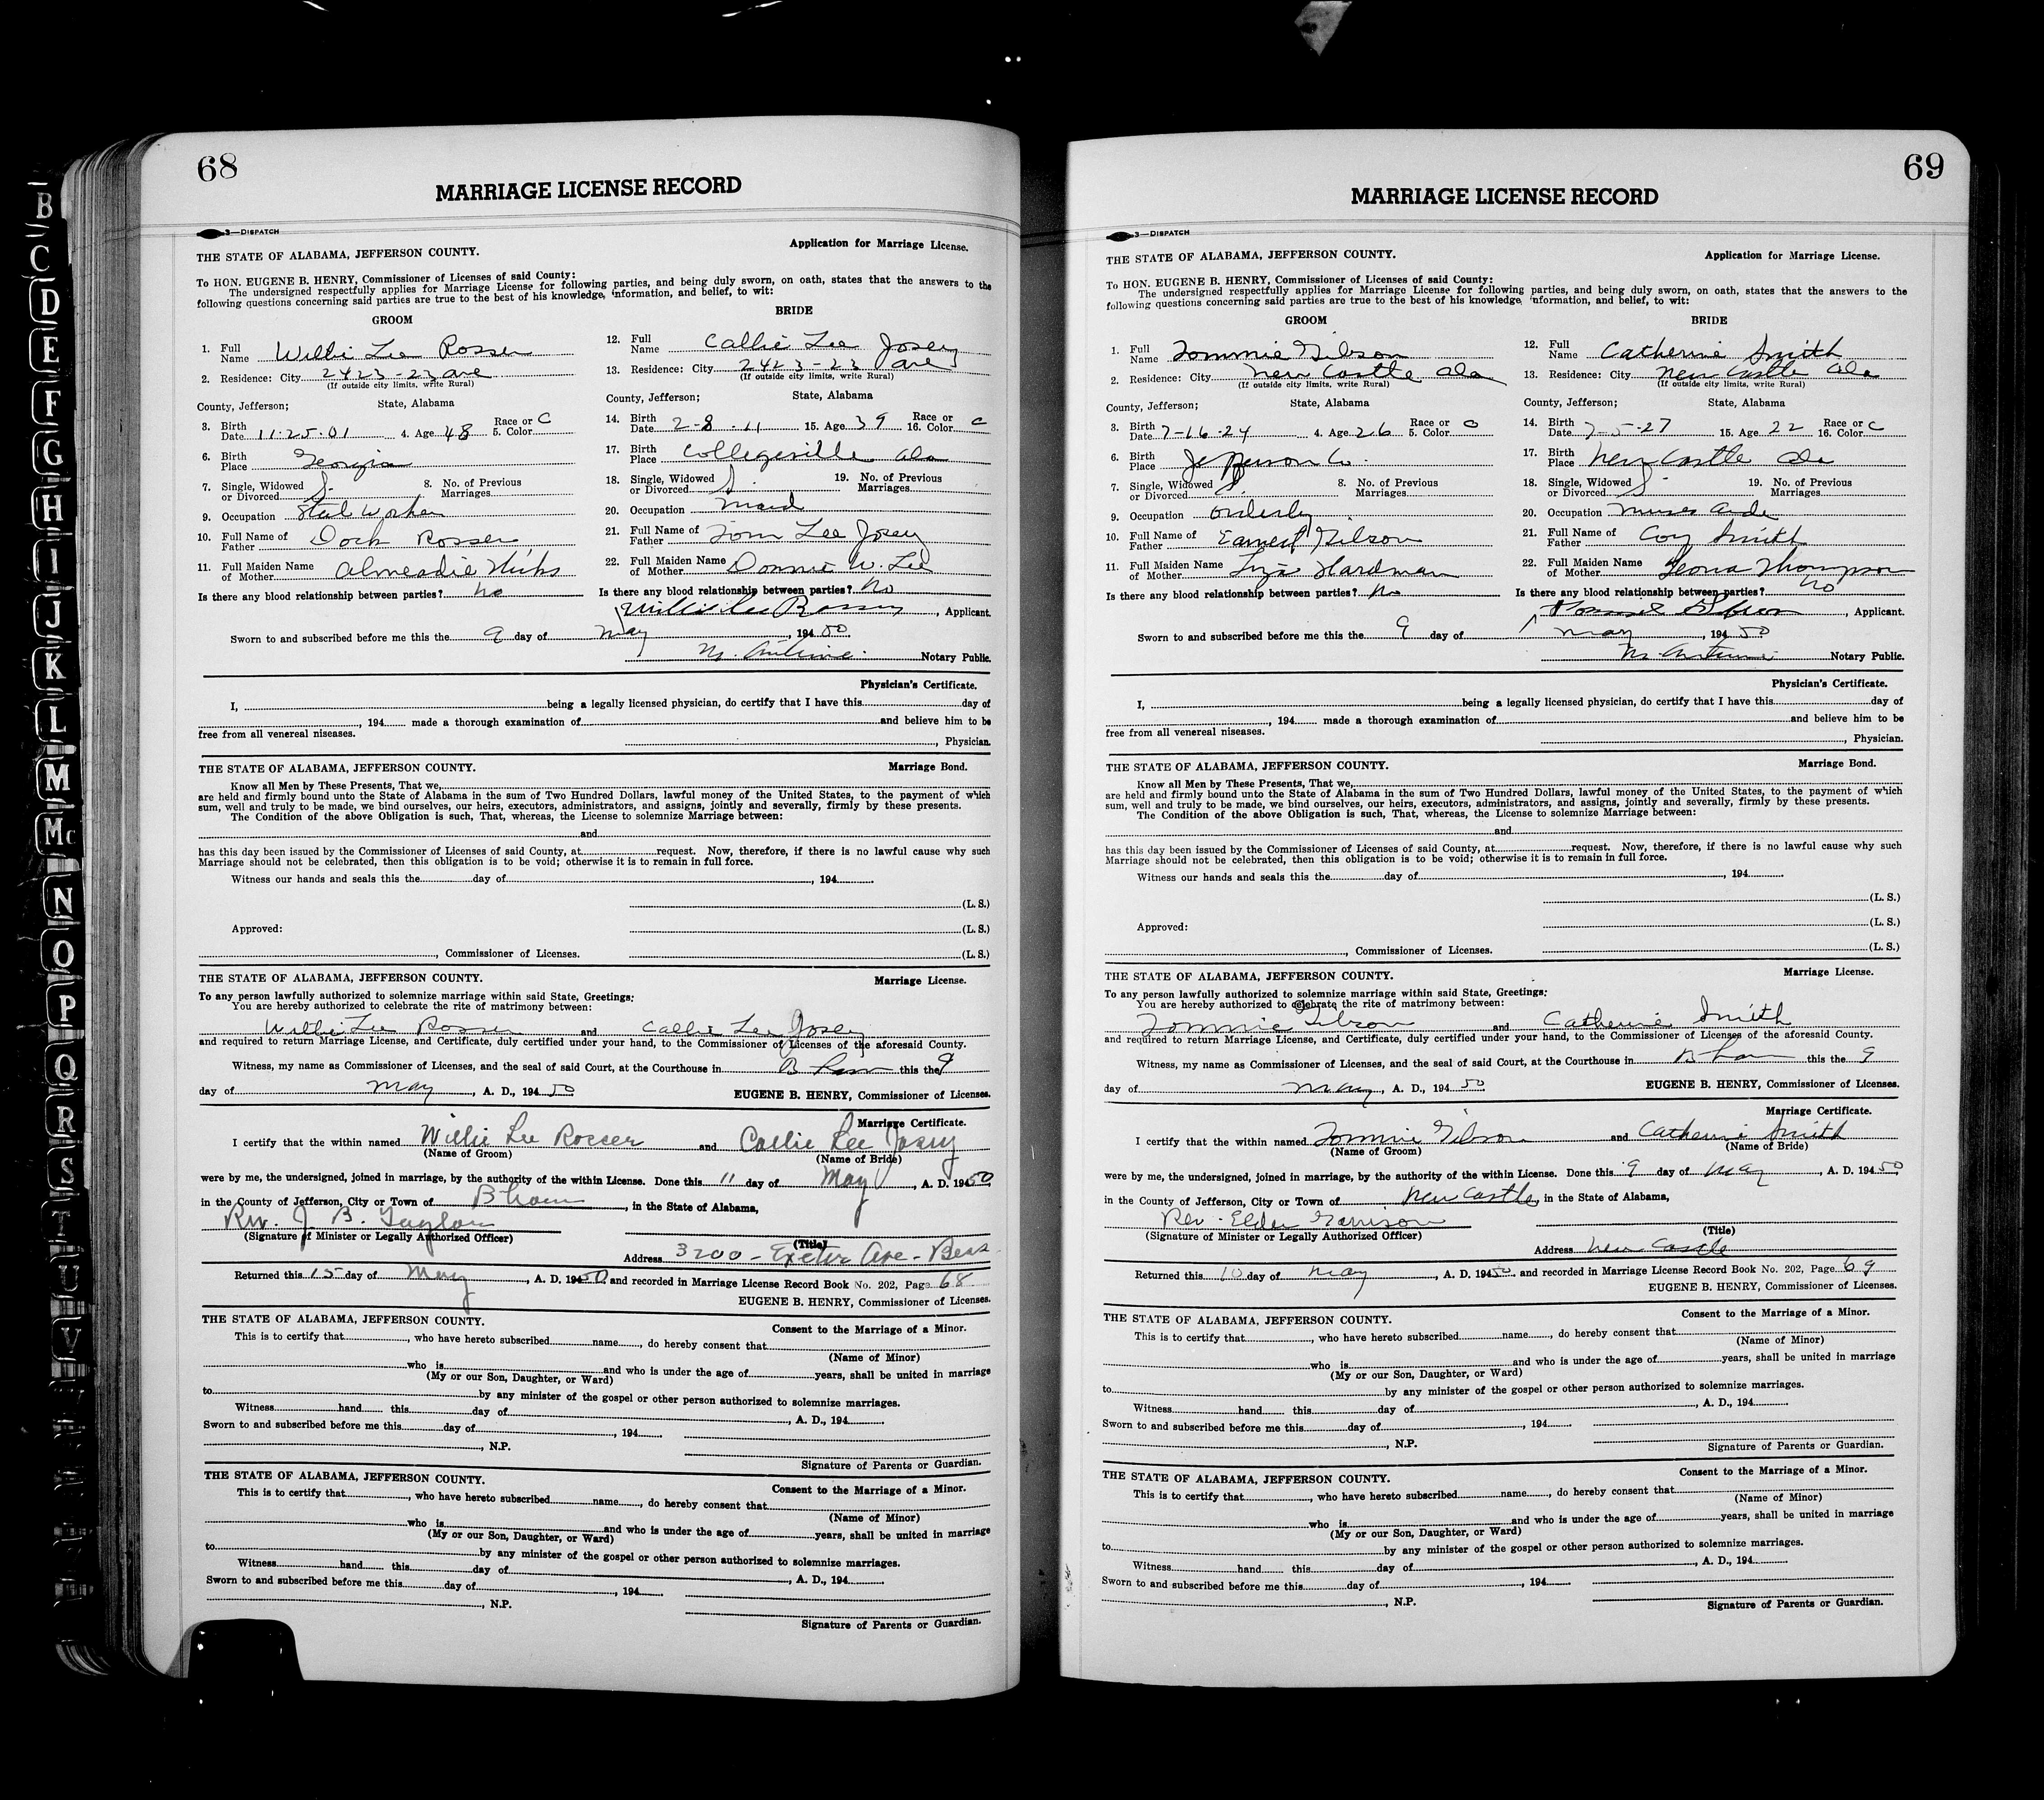 68
MARRIAGE LICENSE RECORD
3—DISPATCH
THE STATE OF ALABAMA, JEFFERSON COUNTY. Application for Marriage License.
To HON. EUGENE B. HENRY, Commissioner of Licenses of said County:
The undersigned respectfully applies for Marriage License for following parties, and being duly sworn, on oath, states that the answers to the
following questions concerning said parties are true to the best of his knowledge, information, and belief, to wit:
GROOM BRIDE
1. Full Name Willie Lee Rosser 12. Full Name Callie Lee Josey
2. Residence: City 2423-23 ave 13. Residence: City 2423-23 ave
(If outside city limits, write Rural) (If outside city limits, write Rural)
County, Jefferson; State, Alabama County, Jefferson; State, Alabama
3. Birth Date 11-25-01 4. Age 48 5. Race or Color C 14. Birth Date 2-8-11 15. Age 39 16. Race or Color C
6. Birth Place Georgia 17. Birth Place Collegeville Ala
7. Single, Widowed or Divorced S. 8. No. of Previous Marriages 18. Single, Widowed or Divorced S. 19. No. of Previous Marriages
9. Occupation Steel Worker 20. Occupation Maid
10. Full Name of Father Dock Rosser 21. Full Name of Father Tom Lee Josey
11. Full Maiden Name of Mother Almeadie Hicks 22. Full Maiden Name of Mother Donnie W. Lee
Is there any blood relationship between parties? No Is there any blood relationship between parties? No
Willie Lee Rosser, Applicant.
Sworn to and subscribed before me this the 9 day of May, 194 50
M. Notary Public.
Physician's Certificate.
I, being a legally licensed physician, do certify that I have this day of
, 194 made a thorough examination of and believe him to be
free from all venereal niseases.
, Physician.
THE STATE OF ALABAMA, JEFFERSON COUNTY. Marriage Bond.
Know all Men by These Presents, That we,
are held and firmly bound unto the State of Alabama in the sum of Two Hundred Dollars, lawful money of the United States, to the payment of which
sum, well and truly to be made, we bind ourselves, our heirs, executors, administrators, and assigns, jointly and severally, firmly by these presents.
The Condition of the above Obligation is such, That, whereas, the License to solemnize Marriage between:
and
has this day been issued by the Commissioner of Licenses of said County, at request. Now, therefore, if there is no lawful cause why such
Marriage should not be celebrated, then this obligation is to be void; otherwise it is to remain in full force.
Witness our hands and seals this the day of , 194
(L. S.)
Approved: (L. S.)
, Commissioner of Licenses. (L. S.)
THE STATE OF ALABAMA, JEFFERSON COUNTY. Marriage License.
To any person lawfully authorized to solemnize marriage within said State, Greetings:
You are hereby authorized to celebrate the rite of matrimony between:
Willie Lee Rosser and Callie Lee Josey
and required to return Marriage License, and Certificate, duly certified under your hand, to the Commissioner of Licenses of the aforesaid County.
Witness, my name as Commissioner of Licenses, and the seal of said Court, at the Courthouse in B'ham this the 9
day of May, A. D., 194 50 EUGENE B. HENRY, Commissioner of Licenses.
Marriage Certificate.
I certify that the within named Willie Lee Rosser and Callie Lee Josey
(Name of Groom) (Name of Bride)
were by me, the undersigned, joined in marriage, by the authority of the within License. Done this 11 day of May, A. D. 1950
in the County of Jefferson, City or Town of B'ham, in the State of Alabama,
Rev. J. B. Taylor
(Signature of Minister or Legally Authorized Officer) (Title)
Address 3200 - Exeter Ave - Bess
Returned this 15 day of May, A. D. 1950 and recorded in Marriage License Record Book No. 202, Page 68
EUGENE B. HENRY, Commissioner of Licenses.
THE STATE OF ALABAMA, JEFFERSON COUNTY. Consent to the Marriage of a Minor.
This is to certify that , who have hereto subscribed name , do hereby consent that
(Name of Minor)
who is and who is under the age of years, shall be united in marriage
(My or our Son, Daughter, or Ward)
to by any minister of the gospel or other person authorized to solemnize marriages.
Witness hand this day of , A. D., 194
Sworn to and subscribed before me this day of , 194
, N.P.
Signature of Parents or Guardian.
THE STATE OF ALABAMA, JEFFERSON COUNTY. Consent to the Marriage of a Minor.
This is to certify that , who have hereto subscribed name , do hereby consent that
(Name of Minor)
who is and who is under the age of years, shall be united in marriage
(My or our Son, Daughter, or Ward)
to by any minister of the gospel or other person authorized to solemnize marriages.
Witness hand this day of , A. D., 194
Sworn to and subscribed before me this day of , 194
, N.P.
Signature of Parents or Guardian.
69
MARRIAGE LICENSE RECORD
3—DISPATCH
THE STATE OF ALABAMA, JEFFERSON COUNTY. Application for Marriage License.
To HON. EUGENE B. HENRY, Commissioner of Licenses of said County:
The undersigned respectfully applies for Marriage License for following parties, and being duly sworn, on oath, states that the answers to the
following questions concerning said parties are true to the best of his knowledge, information, and belief, to wit:
GROOM BRIDE
1. Full Name Tommie Gibson 12. Full Name Catherine Smith
2. Residence: City New Castle Ala 13. Residence: City New Castle Ala
(If outside city limits, write Rural) (If outside city limits, write Rural)
County, Jefferson; State, Alabama County, Jefferson; State, Alabama
3. Birth Date 7-16-24 4. Age 26 5. Race or Color C 14. Birth Date 7-5-27 15. Age 22 16. Race or Color C
6. Birth Place Jefferson Co. 17. Birth Place New Castle Ala
7. Single, Widowed or Divorced S. 8. No. of Previous Marriages 18. Single, Widowed or Divorced S. 19. No. of Previous Marriages
9. Occupation Orderly 20. Occupation Nurses Aide
10. Full Name of Father Earnest Gibson 21. Full Name of Father Coy Smith
11. Full Maiden Name of Mother Liza Hardman 22. Full Maiden Name of Mother Leona Thompson
Is there any blood relationship between parties? No Is there any blood relationship between parties? No
Tommie Gibson, Applicant.
Sworn to and subscribed before me this the 9 day of May, 194 50
M. Notary Public.
Physician's Certificate.
I, being a legally licensed physician, do certify that I have this day of
, 194 made a thorough examination of and believe him to be
free from all venereal niseases.
, Physician.
THE STATE OF ALABAMA, JEFFERSON COUNTY. Marriage Bond.
Know all Men by These Presents, That we,
are held and firmly bound unto the State of Alabama in the sum of Two Hundred Dollars, lawful money of the United States, to the payment of which
sum, well and truly to be made, we bind ourselves, our heirs, executors, administrators, and assigns, jointly and severally, firmly by these presents.
The Condition of the above Obligation is such, That, whereas, the License to solemnize Marriage between:
and
has this day been issued by the Commissioner of Licenses of said County, at request. Now, therefore, if there is no lawful cause why such
Marriage should not be celebrated, then this obligation is to be void; otherwise it is to remain in full force.
Witness our hands and seals this the day of , 194
(L. S.)
Approved: (L. S.)
, Commissioner of Licenses. (L. S.)
THE STATE OF ALABAMA, JEFFERSON COUNTY. Marriage License.
To any person lawfully authorized to solemnize marriage within said State, Greetings:
You are hereby authorized to celebrate the rite of matrimony between:
Tommie Gibson and Catherine Smith
and required to return Marriage License, and Certificate, duly certified under your hand, to the Commissioner of Licenses of the aforesaid County.
Witness, my name as Commissioner of Licenses, and the seal of said Court, at the Courthouse in B'ham this the 9
day of May, A. D., 194 50 EUGENE B. HENRY, Commissioner of Licenses.
Marriage Certificate.
I certify that the within named Tommie Gibson and Catherine Smith
(Name of Groom) (Name of Bride)
were by me, the undersigned, joined in marriage, by the authority of the within License. Done this 9 day of May, A. D. 194 50
in the County of Jefferson, City or Town of New Castle, in the State of Alabama,
Rev. Elder Garrison
(Signature of Minister or Legally Authorized Officer) (Title)
Address New Castle
Returned this 10 day of May, A. D. 194 50 and recorded in Marriage License Record Book No. 202, Page 69
EUGENE B. HENRY, Commissioner of Licenses.
THE STATE OF ALABAMA, JEFFERSON COUNTY. Consent to the Marriage of a Minor.
This is to certify that , who have hereto subscribed name , do hereby consent that
(Name of Minor)
who is and who is under the age of years, shall be united in marriage
(My or our Son, Daughter, or Ward)
to by any minister of the gospel or other person authorized to solemnize marriages.
Witness hand this day of , A. D., 194
Sworn to and subscribed before me this day of , 194
, N.P.
Signature of Parents or Guardian.
THE STATE OF ALABAMA, JEFFERSON COUNTY. Consent to the Marriage of a Minor.
This is to certify that , who have hereto subscribed name , do hereby consent that
(Name of Minor)
who is and who is under the age of years, shall be united in marriage
(My or our Son, Daughter, or Ward)
to by any minister of the gospel or other person authorized to solemnize marriages.
Witness hand this day of , A. D., 194
Sworn to and subscribed before me this day of , 194
, N.P.
Signature of Parents or Guardian.
B
C
D
E
F
G
H
I
J
K
L
M
Mc
N
O
P
Q
R
S
T
U
V